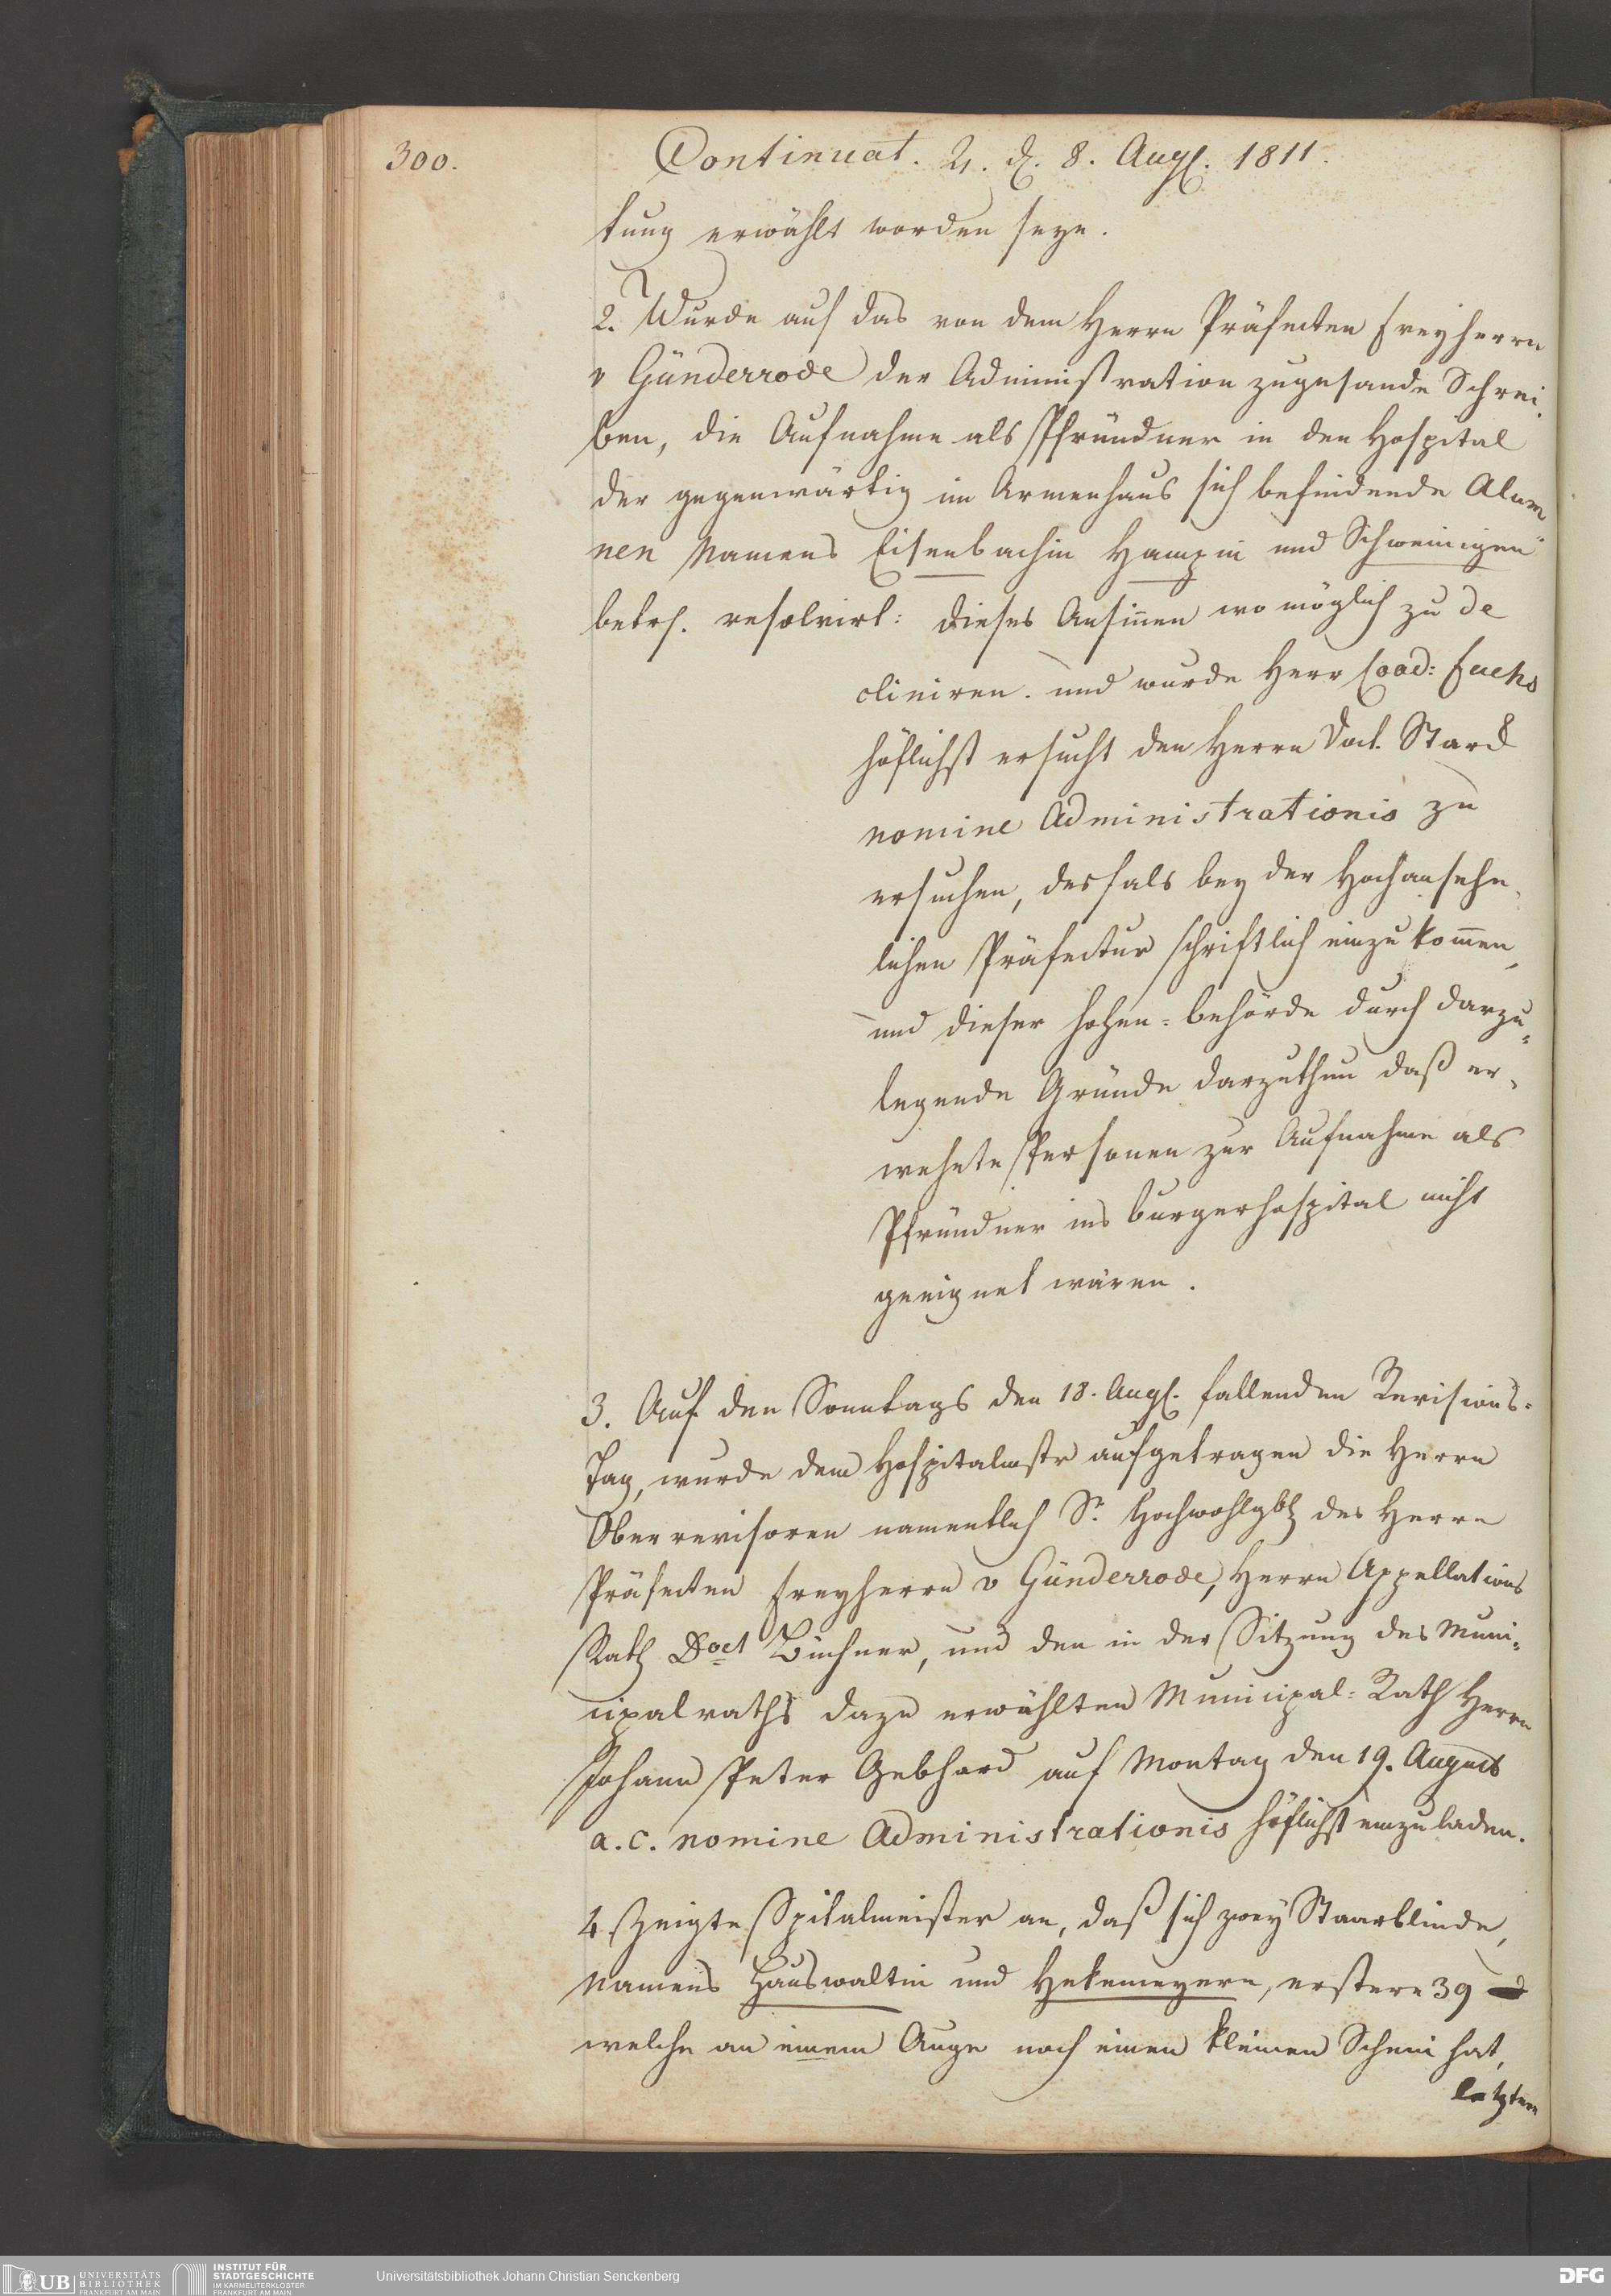 300.
Continuat. 4. d. 8. Augs. 1811.
tung erwählt worden seye.
2. Wurde auf das von dem Herrn Präfecten Freyherrn
v Günderrode der Administration zugesande Schrei-
ben, die Aufnahme als Pfründner in den Hospital
der gegenwärtig im Armenhaus sich befindende Alum
nen Namens Eisenbachin Hampin und Schweinigen
betrf. resolvirt: dieses Ansinnen wo möglich zu de
cliniren. und wurde Herr Coad: Fuchs
höflichst ersucht den Herrn Doct. Starck
nomine Administrationis zu
ersuchen, desfals bey der Hochansehn-
lichen Präfectur schriftlich einzukom̄en,
und dieser hohen-behörde durch darzu-
legende Gründe darzuthun daß er-
wehnte Personen zur Aufnahme als
Pfründner ins burgerhospital nicht
geeignet wären.
3. Auf den Sonntags den 18. Augs. fallenden Revisions-
Tag, wurde dem Hospitalmstr aufgetragen die Herrn
Oberrevisoren namentlich Sr. Hochwohlgb des Herrn
Präfecten Freyherrn v Günderrode, Herrn Appellations
Rath Doct Büchner, und den in der Sitzung des Muni-
cipalraths dazu erwählten Municipal-Rath Herrn
Johann Peter Gebhard auf Montag den 19. August
a. c. nomine Administrationis höflichst einzuladen.
4. Zeigte Spitalmeister an, daß sich zwey Staarblinde,
Namens Hauswaltin und Hekemeyern, erstere 39
welche an einem Auge noch einen kleinen Schein hat,
letztere
UB UNIVERSITÄTS
BIBLIOTHEK
FRANKFURT AM MAIN
INSTITUT FÜR
STADTGESCHICHTE
IM KARMELITERKLOSTER
FRANKFURT AM MAIN
Universitätsbibliothek Johann Christian Senckenberg
DFG